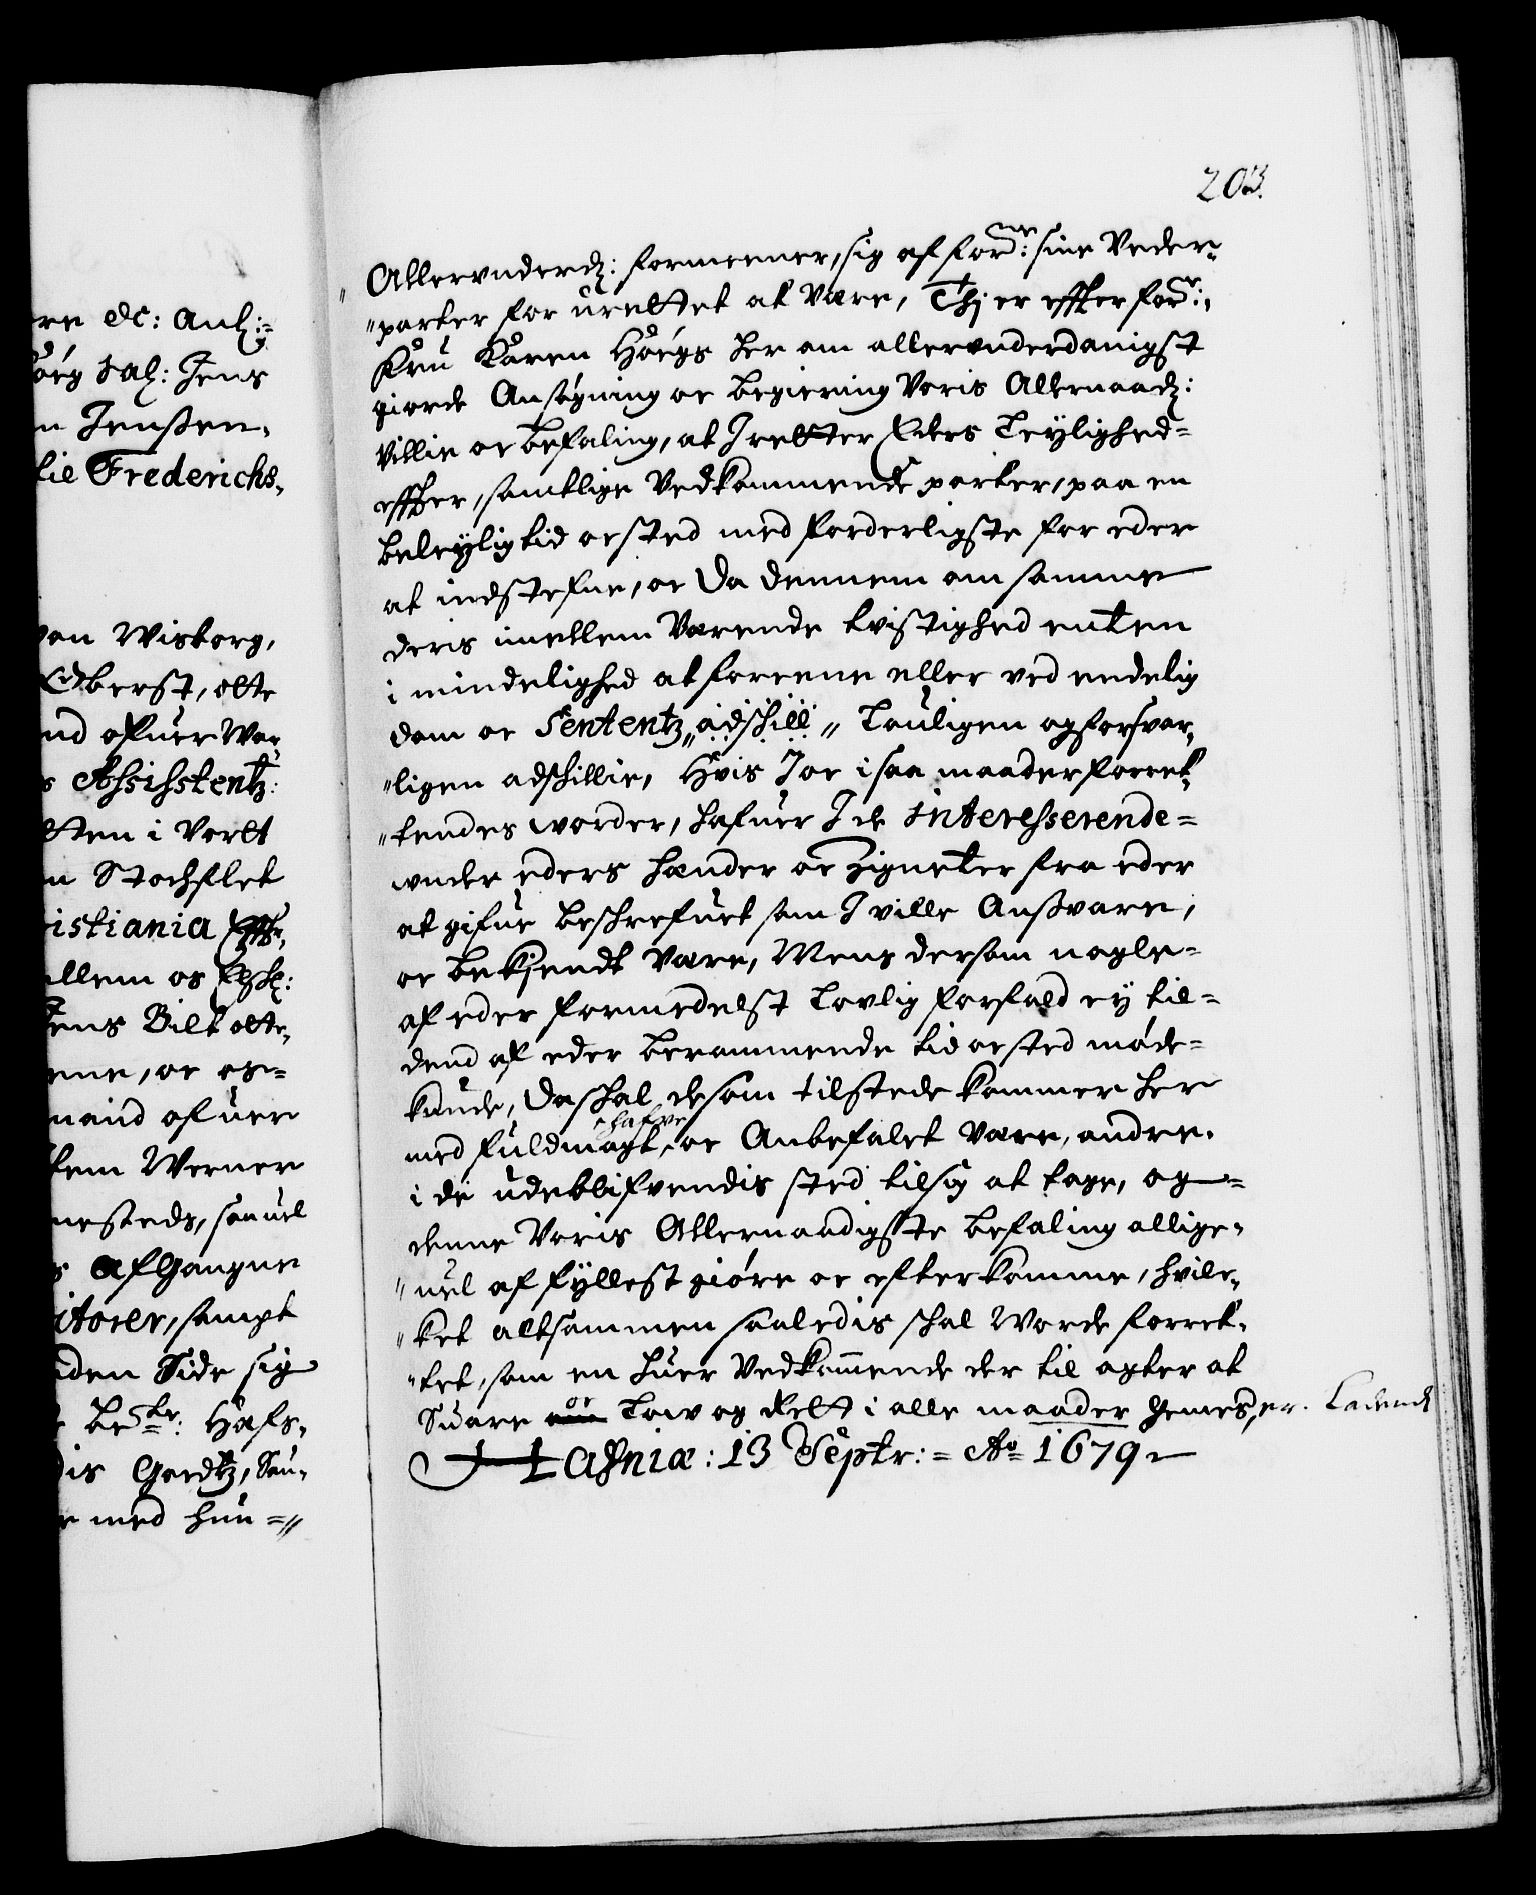 203.
Allervnderd: formeener, sig af forne: sine Veder-
"parter for urettet at Være, Thj er effter forne:
Fru Karen Höegs her om allervnderdanigst
giorde Ansögning oc begiering Voris Allernaad:
Villie oc befaling, at I retter Eders Leylighed-
effter, samtlige Vedkommende parter, paa en
beleylig tid oc sted med forderligste for eder
at indstefne, oc da dennem om samme
deris imellem Værende tvistighed enten
i mindelighed at foreene eller ved endelig
dom oc Sententz adskill Lauligen og forsvar-
"ligen adskillie, Hvis I oc i saa maader forret-
"tendes vorder, hafuer I de interesserende-
under eders hænder oc Zigneter fra eder
at gifue beschrefuet som I ville Ansvare,
oc bekjendt Være, Mens dersom nogle-
af eder formedelst Lovlig forfald ey til-
dend af eder berammende tid oc sted möde-
kunde, Da skal de som tilstede kommer her
med fuldmagt hafve oc Anbefalet Være, andre
i de udeblifvendis sted til sig at tage, og-
denne Voris Allernaadigste befaling allige-
"uel af fyllest giøre oc efterkomme, hvil-
"ket altsammen saaledis skal Worde forret-
"tet, som en huer Vedkommende der til agter at
Suare oc Low og Rett i alle maader gemes,
Hafniæ: 13 Septr: = Ao 1679
re &c: Anl:
öeg Sal: Jens
n Jenssen,
til Frederichs-
von Wisborg,
Oberst, otte
nd ofuer War-
s Assistentz:
tten i Vort
n Stochflet
istiania
ellem os Elsk:
Jens Bilt otte-
ene, oc os-
mand ofuer
tem Werner
mesteds, saauel
s afgangne
itorer, sampt
den Side sig
be: Hafs-
dis Gordtz, Sau-
e med hun-